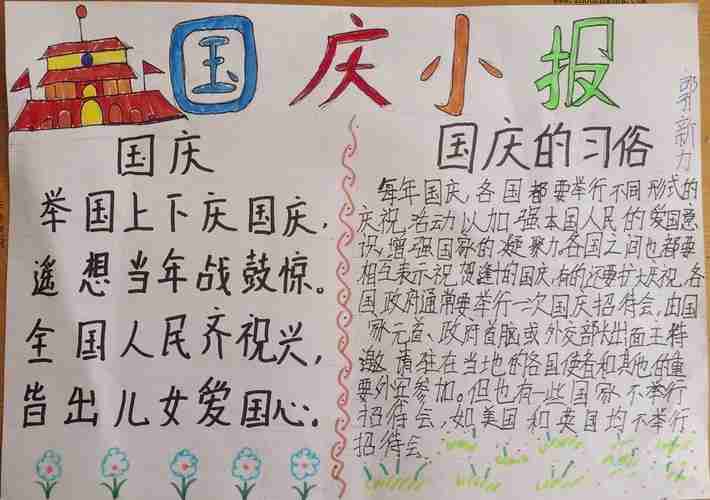 国庆小报
新力
国庆
举国上下庆国庆,
遥想当年战鼓惊。
全国人民齐祝兴,
皆出儿女爱国心。
国庆的习俗
每年国庆,各国都要举行不同形式的
庆祝,活动以加强本国人民的爱国意
识,增强国家的凝聚力各国之间也都要
相互表示祝贺逢十的国庆,有的还要扩大庆祝,各
国政府通常要举行一次国庆招待会,由国
家元首、政府首脑或外交部大出面主持
邀请驻在当地的各国使者和其他的重
要外宾参加。但也有一些国家不举行
招待会,如美国和英国均不举行
招待会.